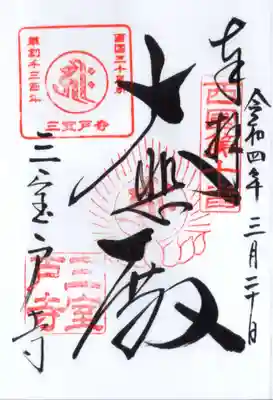 奉拝
令和四年三月二十日
西國十番
大悲殿
三室戸寺
西国三十三所
草創千三百年
三室戸寺
三室戸寺